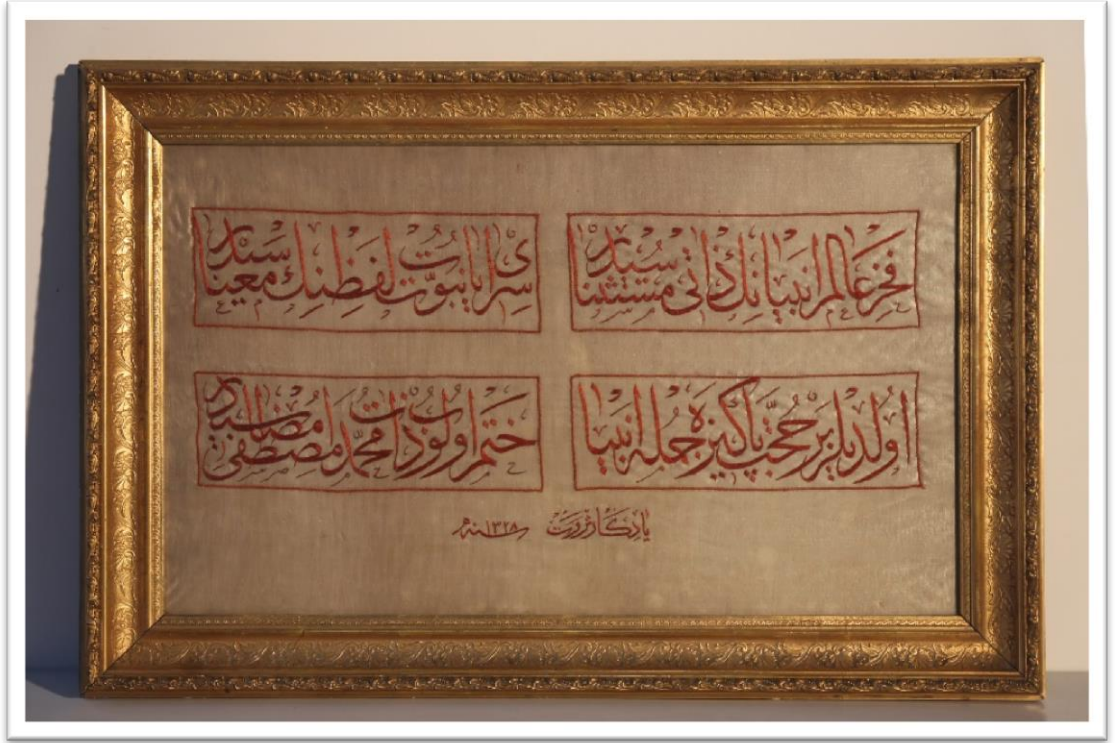 فخر عالم انبيانك ذاتى مستثناسيدر
سراپاى نبوت لفظنك معناسيدر
اولديلر بر حجت پاكيزه جمله انبيا
ختم اولوب ذات محمد مصطفى امضاسيدر
يادكار ثروت سنه ١٣٢٨